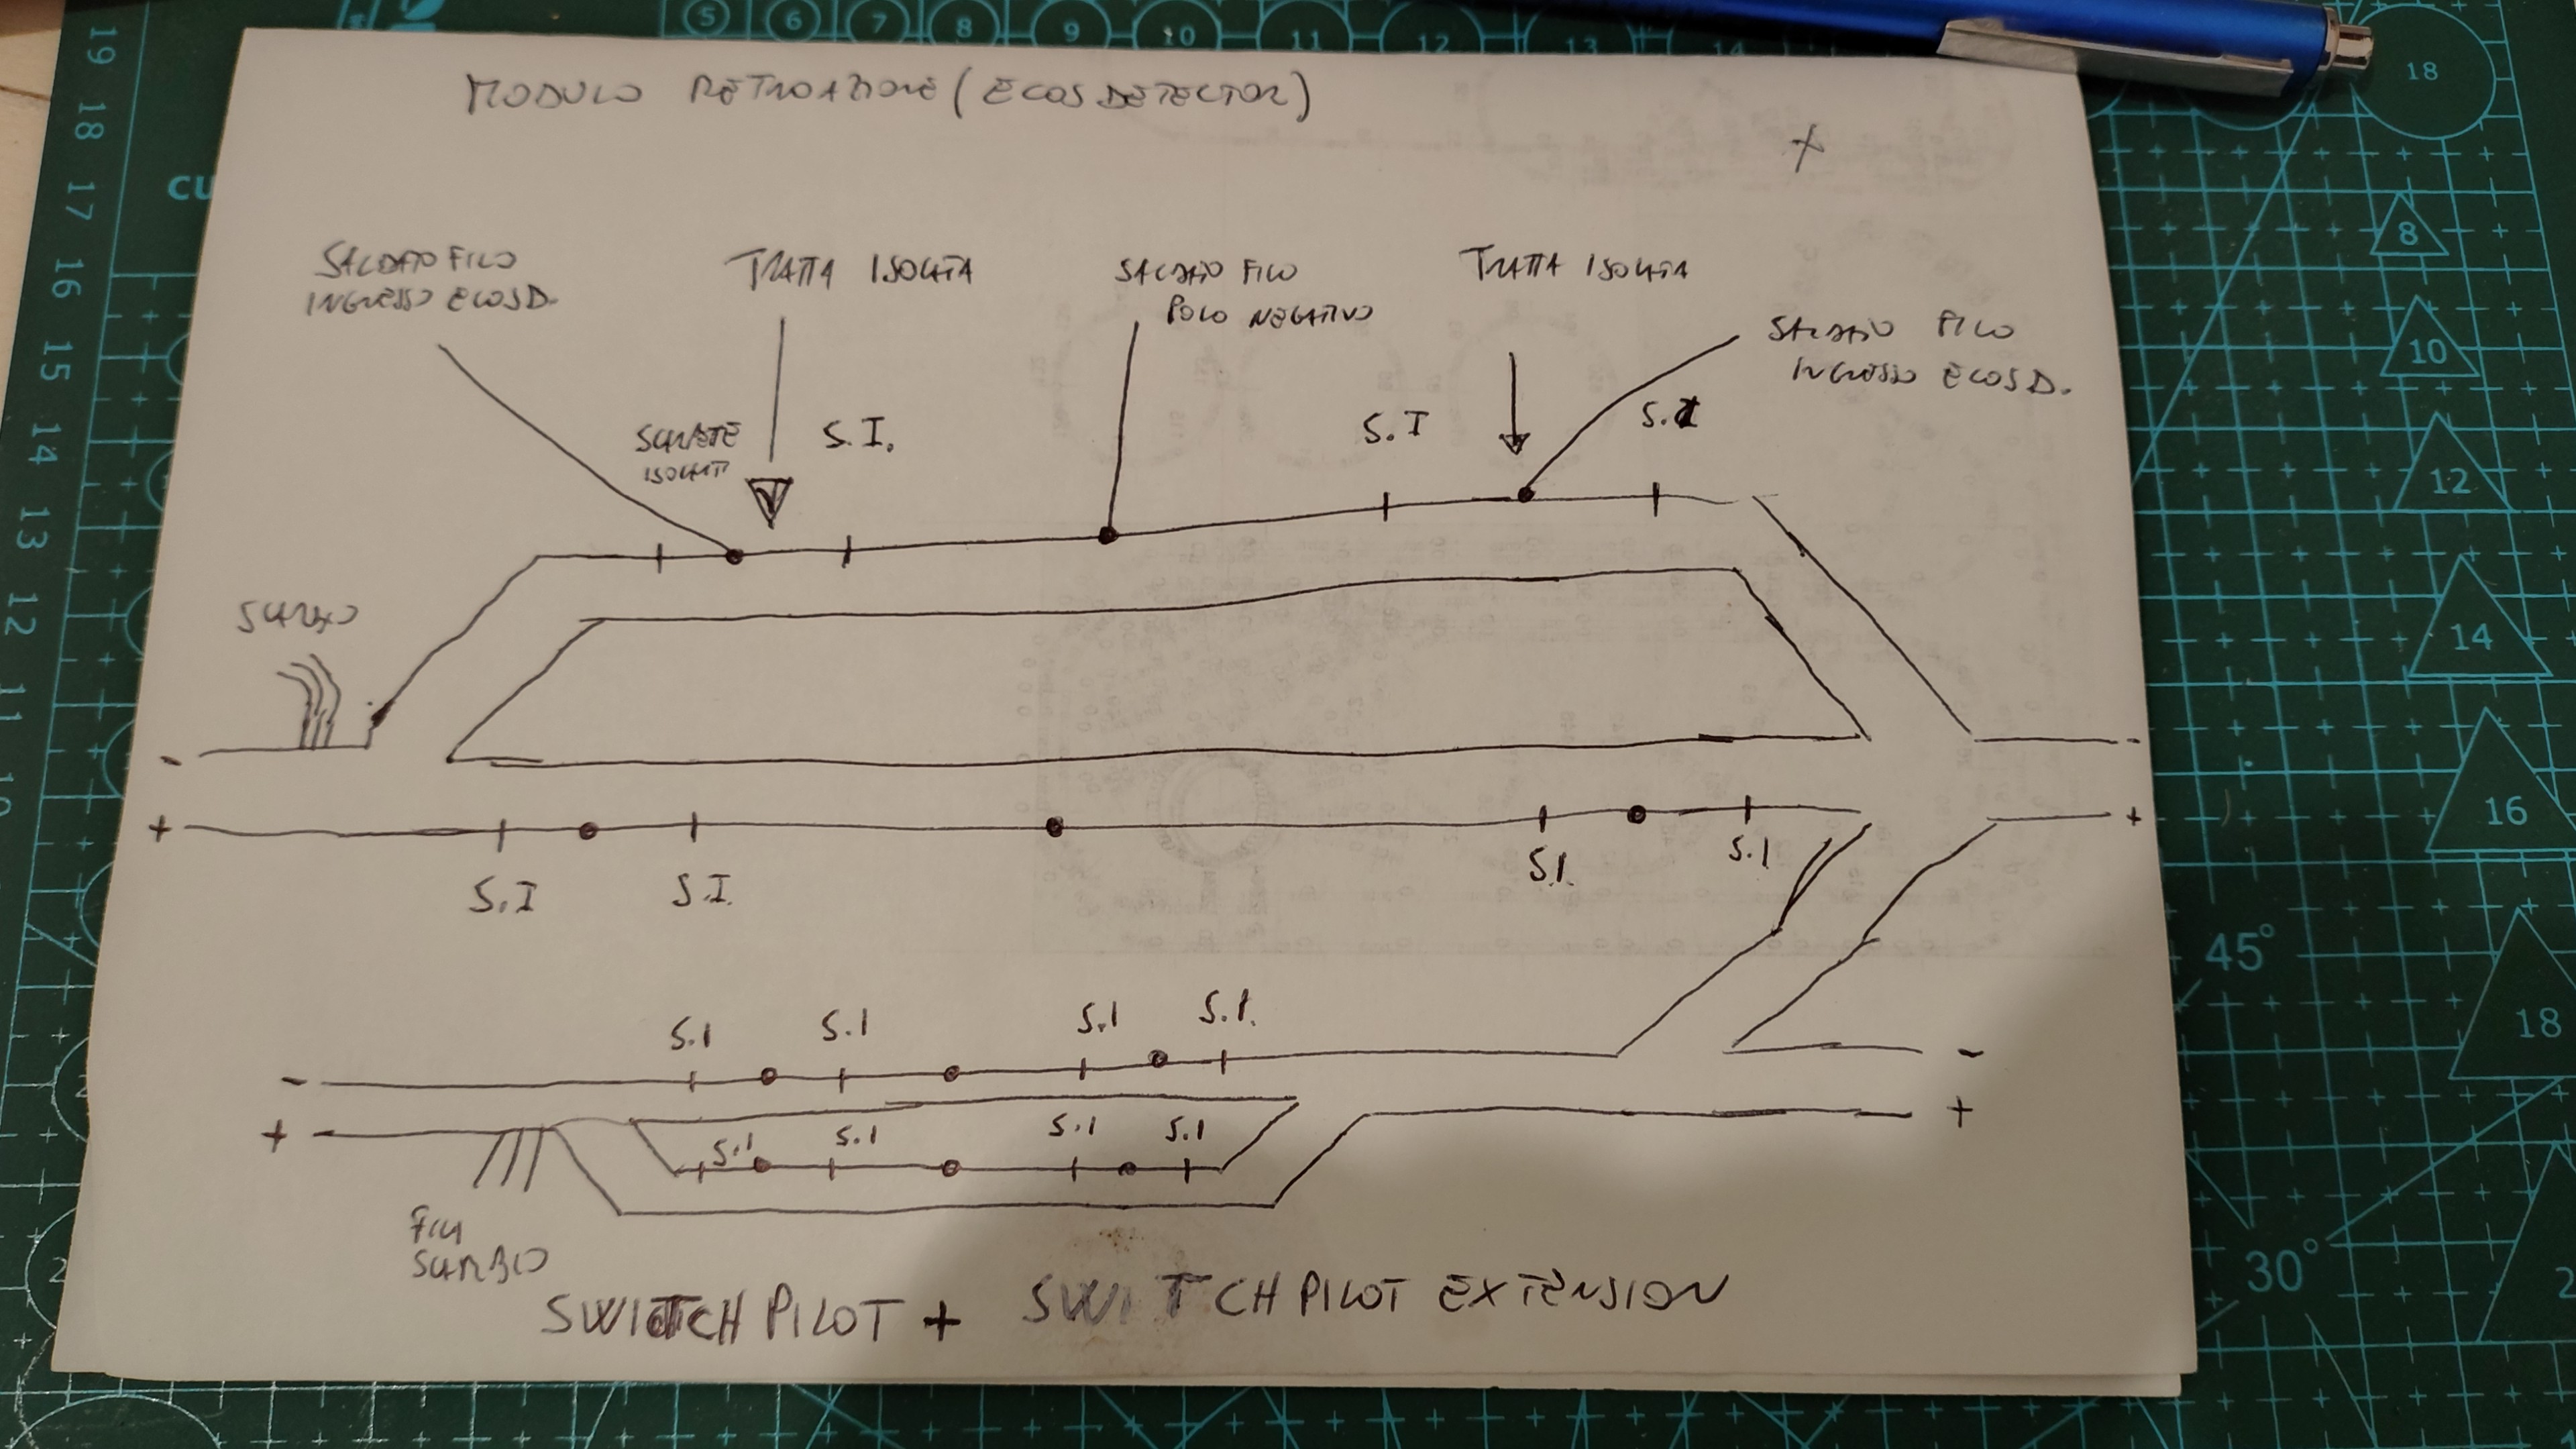 5 6 7 8 9 10 11 12 13 14
18
19
18
17
16
15
14
13
12
11
10
CU
MODULO RETROAZIONE (ECOS DETECTOR)
+
SALDATO FILO
INGRESSO ECOS D.
TRATTA ISOLATA
SALDATO FILO
POLO NEGATIVO
TRATTA ISOLATA
SALDATO FILO
INGRESSO ECOS D.
SCARPETTE
ISOLANTI
S.I.
S.I
S.I
SCAMBIO
-
-
+
+
S.I
S.I.
S.I.
S.I
S.I
S.I
S.I
S.I.
-
-
+
+
S.I
S.I
S.I
S.I
FILI
SCAMBIO
SWITCH PILOT + SWITCH PILOT EXTENSION
8
10
12
14
16
18
45°
30°